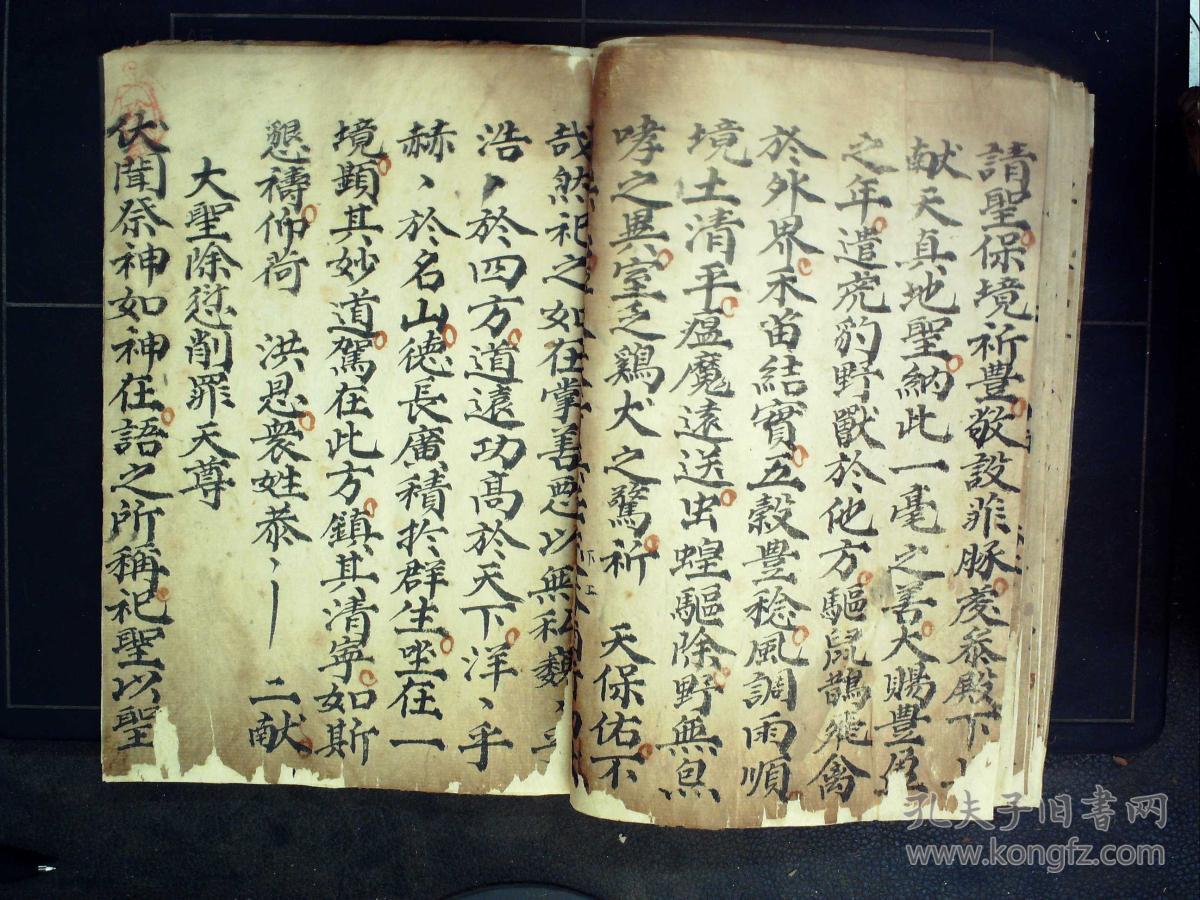 請聖保境祈豊敬設菲豚虔叅殿下
献天真地聖納此一毫之善大賜豊
之年遣虎豹野獸於他方驅鼠鵲飛禽
於外界禾苗結實五穀豊稔風調雨順
境土清平瘟魔遠送虫蝗驅除野無
哮之異室乏鷄犬之驚祈 天保佑不
哉然祀之如在掌善惡以無私巍丶乎
浩丶於四方道遠功高於天下洋丶乎
赫丶於名山德長廣積扵群生坐在一
境顕其妙道駕在此方鎮其清寧如斯
懇禱仰荷 洪恩衆姓恭丶丨 二献
大聖除愆削罪天尊
伏聞祭神如神在語之所稱祀聖以聖
孔夫子旧书网
www.kongfz.com